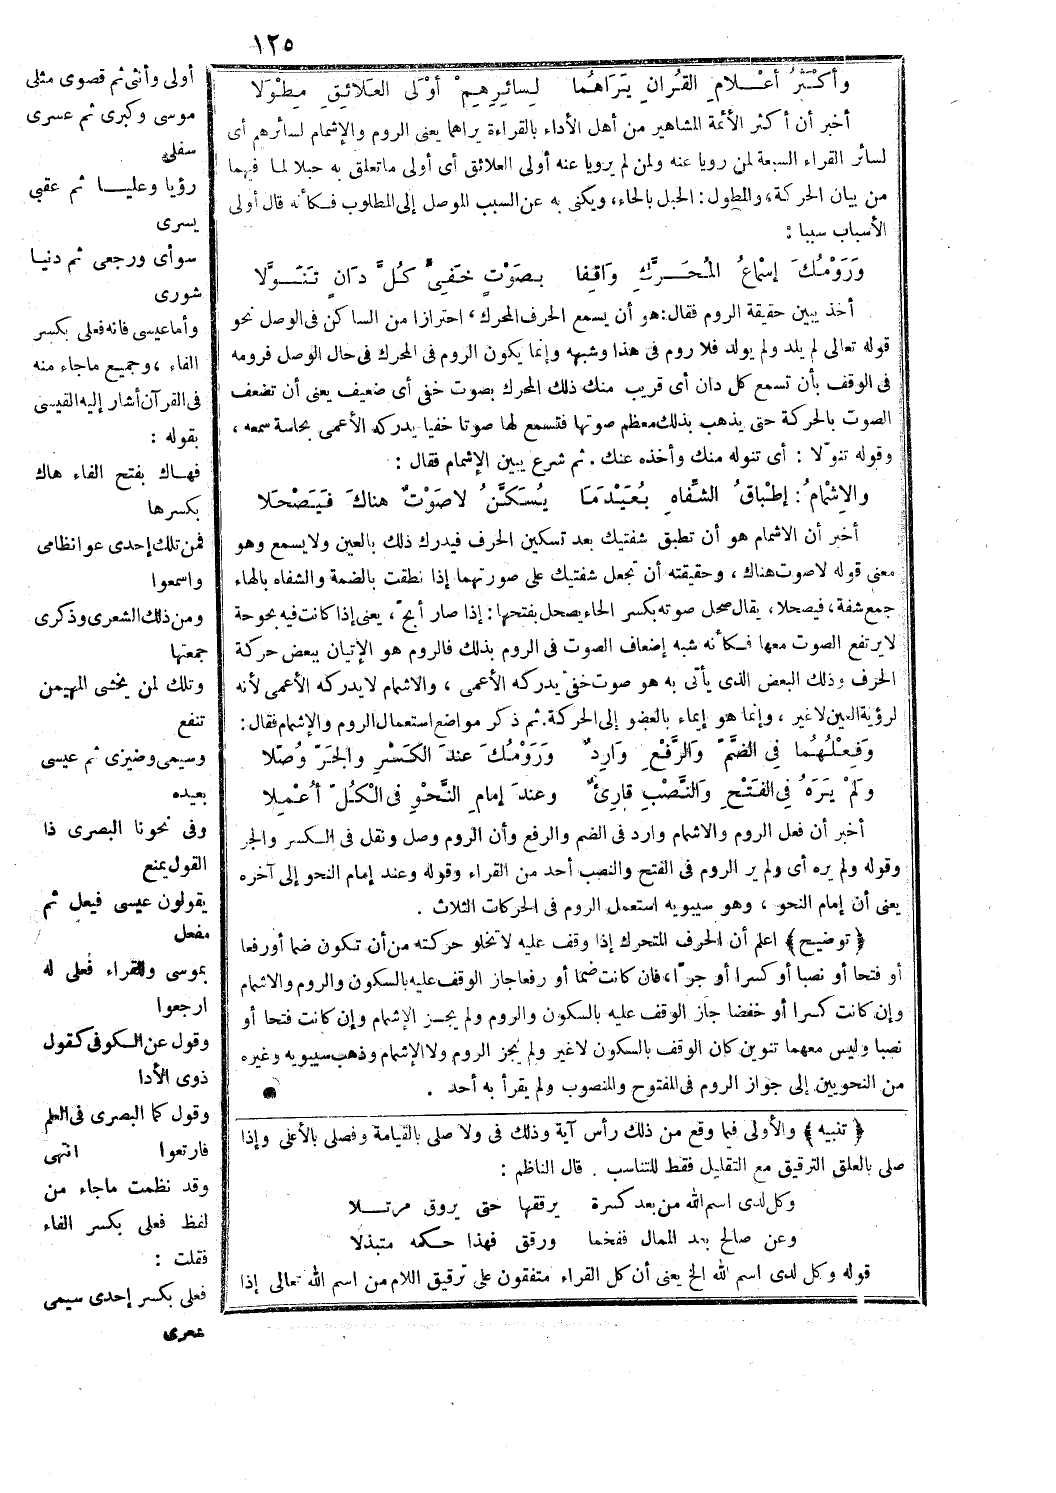 ١٢٥
وأَكْثَرُ أعْـلامِ القُرانِ يَرَاهُما لِسائِرِهِمْ أوْلَى العَلائِقِ مِطْوَلا
أخبر أن أكثر الأئمة المشاهير من أهل الأداء بالقراءة يراهما يعنى الروم والإشمام لسائرهم أى
لسائر القراء السبعة لمن رويا عنه ولمن لم يرويا عنه أولى العلائق أى أولى ماتعلق به حبلا لما فيهما
من بيان الحركة، والمطول : الحبل بالحاء، ويكنى به عن السبب الموصل إلى المطلوب فكأنه قال أولى
الأسباب سببا :
وَرَوْمُكَ إسْمَاعُ المُحَرَّكِ وَاقِفا بِصَوْتٍ خَفِىٍّ كُلَّ دَانٍ تَنَوَّلا
أخذ يبين حقيقة الروم فقال: هو أن يسمع الحرف المحرك، احترازا من الساكن فى الوصل نحو
قوله تعالى لم يلد ولم يولد فلا روم فى هذا وشبهه وإنما يكون الروم فى المحرك فى حال الوصل فرومه
فى الوقف بأن تسمع كل دان أى قريب منك ذلك المحرك بصوت خفى أى ضعيف يعنى أن تضعف
الصوت بالحركة حتى يذهب بذلك معظم صوتها فتسمع لها صوتا خفيا يدركه الأعمى بحاسة سمعه ،
وقوله تنوّلا : أى تنوله منك وأخذه عنك . ثم شرع يبين الإشمام فقال :
والإِشْمامُ: إطْباقُ الشِّفاهِ بُعَيْدَمَا يُسَكَّنُ لاصَوْتٌ هناكَ فَيَصْحَلا
أخبر أن الاشمام هو أن تطبق شفتيك بعد تسكين الحرف فيدرك ذلك بالعين ولا يسمع وهو
معنى قوله لاصوت هناك ، وحقيقته أن تجعل شفتيك على صورتهما إذا نطقت بالضمة والشفاه بالهاء
جمع شفة، فيصحلا، يقال صحل صوته بكسر الحاء يصحل بفتحها: إذا صار أبحّ، يعنى إذا كانت فيه بحوحة
لايرتفع الصوت معها فكأنه شبه إضعاف الصوت فى الروم بذلك فالروم هو الإتيان ببعض حركة
الحرف وذلك البعض الذى يأتى به هو صوت خفىّ يدركه الأعمى ، والاشمام لايدركه الأعمى لأنه
لرؤية العين لاغير ، وإنما هو إيماء بالعضو إلى الحركة. ثم ذكر مواضع استعمال الروم والإشمام فقال:
وَفِعْلُهُما فى الضَّمِّ وَالرَّفْعِ وَارِدٌ وَرَوْمُكَ عندَ الكَسْرِ والجَرّ وُصِّلا
ولَمْ يَرَهُ فى الفَتْحِ وَالنَّصْبِ قارِئٌ وعندَ إمامِ النَّحْوِ فى الكُلّ أُعْمِلا
أخبر أن فعل الروم والاشمام وارد فى الضم والرفع وأن الروم وصل ونقل فى الكسر والجر
وقوله ولم يره أى ولم ير الروم فى الفتح والنصب أحد من القراء وقوله وعند إمام النحو إلى آخره
يعنى أن إمام النحو ، وهو سيبويه استعمل الروم فى الحركات الثلاث .
﴿ توضيح ﴾ اعلم أن الحرف المتحرك إذا وقف عليه لاتخلو حركته من أن تكون ضما أورفعا
أو فتحا أو نصبا أو كسرا أو جرّا، فان كانت ضما أو رفعا جاز الوقف عليه بالسكون والروم والاشمام
وإن كانت كسرا أو خفضا جاز الوقف عليه بالسكون والروم ولم يجـز الإشمام وإن كانت فتحا أو
نصبا وليس معهما تنوين كان الوقف بالسكون لاغير ولم يجز الروم ولا الإشمام وذهب سيبويه وغيره
من النحويين إلى جواز الروم فى المفتوح والمنصوب ولم يقرأ به أحد .
﴿ تنبيه ﴾ والأولى فيما وقع من ذلك رأس آية وذلك فى ولا صلى بالقيامة وفصلى بالأعلى وإذا
صلى بالعلق الترقيق مع التقليل فقط للتناسب . قال الناظم :
وكل لدى اسم الله من بعد كسرة يرققها حتى يروق مرتـلا
وعن صالح بعد الممال ففخما ورقق فهذا حكمه متبذلا
قوله وكل لدى اسم الله الخ يعنى أن كل القراء متفقون على ترقيق اللام من اسم الله تعالى إذا
أولى وأنثى ثم قصوى مثلى
موسى وكبرى ثم عسرى
سفلى
رؤيا وعليـا ثم عقبى
يسرى
سوأى ورجعى ثم دنيا
شورى
وأما عيسى فانه فعلى بكسر
الفاء ، وجميع ماجاء منه
فى القرآن أشار إليه القيسى
بقوله :
فهاك بفتح الفاء هاك
بكسرها
فمن تلك إحدى عوا نظامى
واسمعوا
ومن ذلك الشعرى وذكرى
جمعتها
وتلك لمن يخشى المهيمن
تنفع
وسيمى وضيزى ثم عيسى
بعيده
وفى نحونا البصرى ذا
القول يمنع
يقولون عيسى فيعل ثم
مفعل
بموسى والقراء فعلى له
ارجعوا
وقول عن الكوفى كقول
ذوى الأدا
وقول كما البصرى فى العلم
فارتعوا انتهى
وقد نظمت ماجاء من
لفظ فعلى بكسر الفاء
فقلت :
فعلى بكسر إحدى سيمى
شعرى